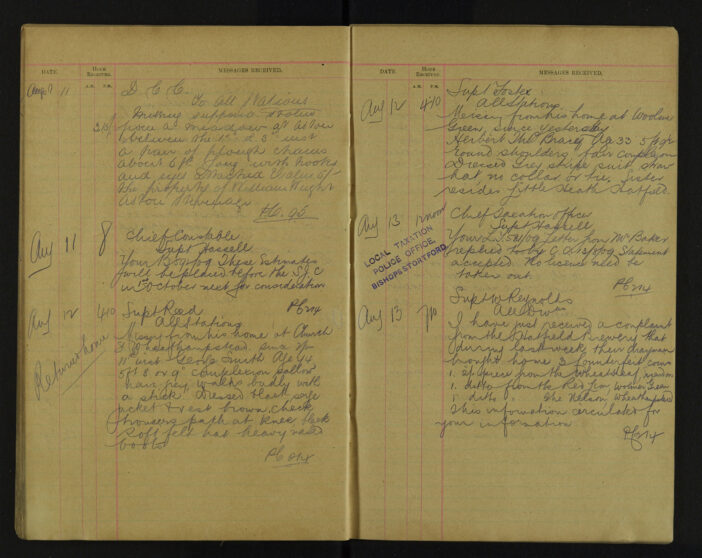 DATE
HOUR RECEIVED.
A.M. P.M.
MESSAGES RECEIVED.
Aug 11
D C C.
To all Stations
Missing supposed stolen
from a meadow at Aston
between the 1st & 5th inst
a pair of plough chains
about 6ft long with hooks
and eyes
the property of William Wright
Aston Stevenage
PC. 95
Aug 11
8
Chief Constable
Supt Hassell
Your These Estimates
will be placed before the S.J.C
in October next for consideration
PC 214
Aug 12
4/10
Supt Reed
All Stations
Missing from his home at Church
St Wheathampstead since
11 inst George Smith Age 44
5ft 8 or 9" Complexion sallow
hair grey, walks badly with
a stick dressed black
jacket & vest brown check
trousers patch at knee black
soft felt hat heavy nailed
boots
PC 214
Returned home
DATE
HOUR RECEIVED.
A.M. P.M.
MESSAGES RECEIVED.
Aug 12
4/10
Supt Foster
All Stations
Missing from his home at Woolmer
Green, since yesterday
Herbert Thos Bracey Age 33 5ft
round shoulders, fair complexion
Dressed Grey stripe suit, straw
hat no collar or tie. Sister
resides Little Heath Hatfield.
Aug 13
12 noon
Chief Taxation Officer
Supt Hassell
Your Letter from Mr Baker
replied to by Statement
accepted. No licence need be
taken out.
PC 214
LOCAL TAXATION
POLICE OFFICE,
BISHOPS STORTFORD
Aug 13
7/10
Supt W Reynolds
All Divns
I have just received a complaint
from the Hatfield Brewery that
during last week their drayman
brought home 3 counterfeit coins
1. from the Wheatsheaf,
1. ditto from the Red Lion, Woolmer Green
1 ditto " The Nelson, Wheathampstead
This information circulated for
your information
PC 214